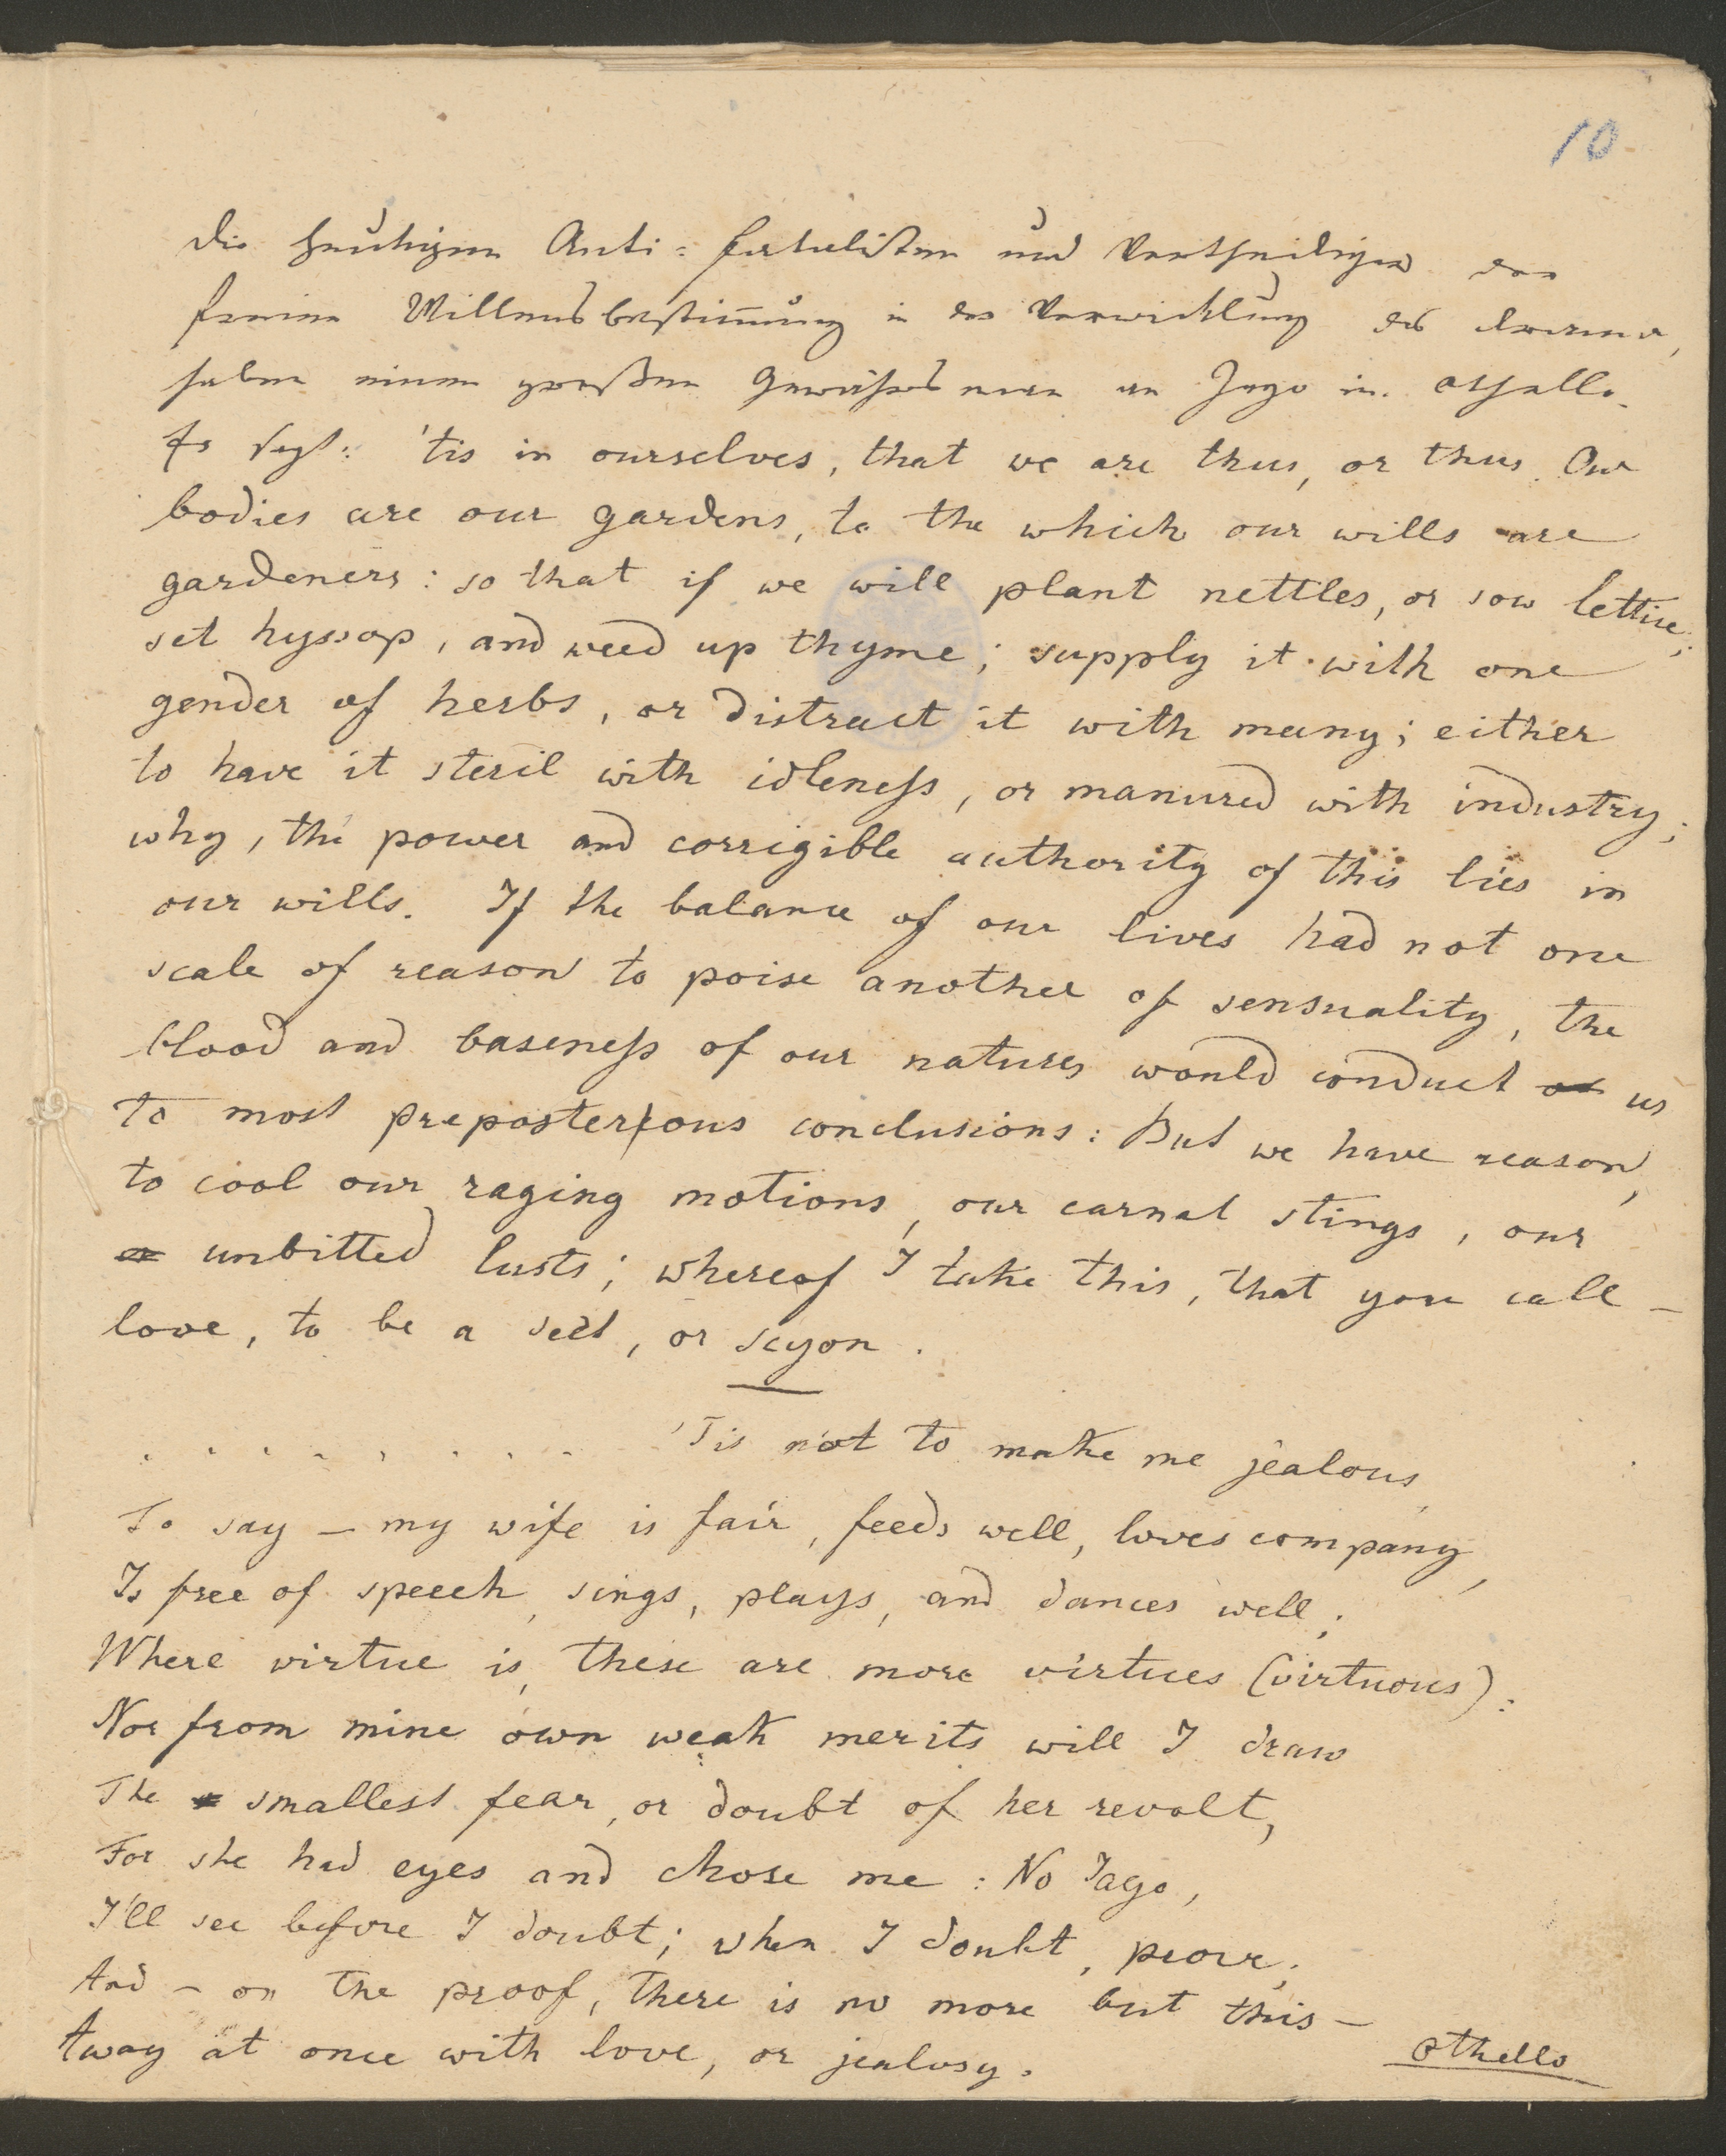 10
Die heutigen Anti-fatalisten und Vertheidiger der
freien Willensbestimmung in der Verwicklung des Dramas,
haben einen großen Gewährsmann an Jago in Othello.
Er sagt: 'tis in ourselves, that we are thus, or thus. Our
bodies are our gardens, to the which our wills are
gardeners: so that if we will plant nettles, or sow lettice;
set hyssop, and weed up thyme; supply it with one
gender of herbs, or distract it with many; either
to have it steril with idleneſs, or manured with industry;
why, the power and corrigible authority of this lies in
our wills. If the balance of our lives had not one
scale of reason to poise another of sensuality, the
blood and baseneſs of our natures would conduct us
to most preposterous conclusions: But we have reason,
to cool our raging motions, our carnal stings, our
unbitted lusts; whereof I take this, that you call –
love, to be a sect, or scyon.
. . . . . . . . 'Tis not to make me jealous,
To say – my wife is fair, feeds well, loves company,
Is free of speech, sings, plays, and dances well;
Where virtue is, these are more virtues (virtuous):
Nor from mine own weak merits will I draw
The smallest fear, or doubt of her revolt,
For she had eyes and chose me: No Iago,
I'll see before I doubt; when I doubt, prove;
And – on the proof, there is no more but this –
Away at once with love, or jealosy.
Othello